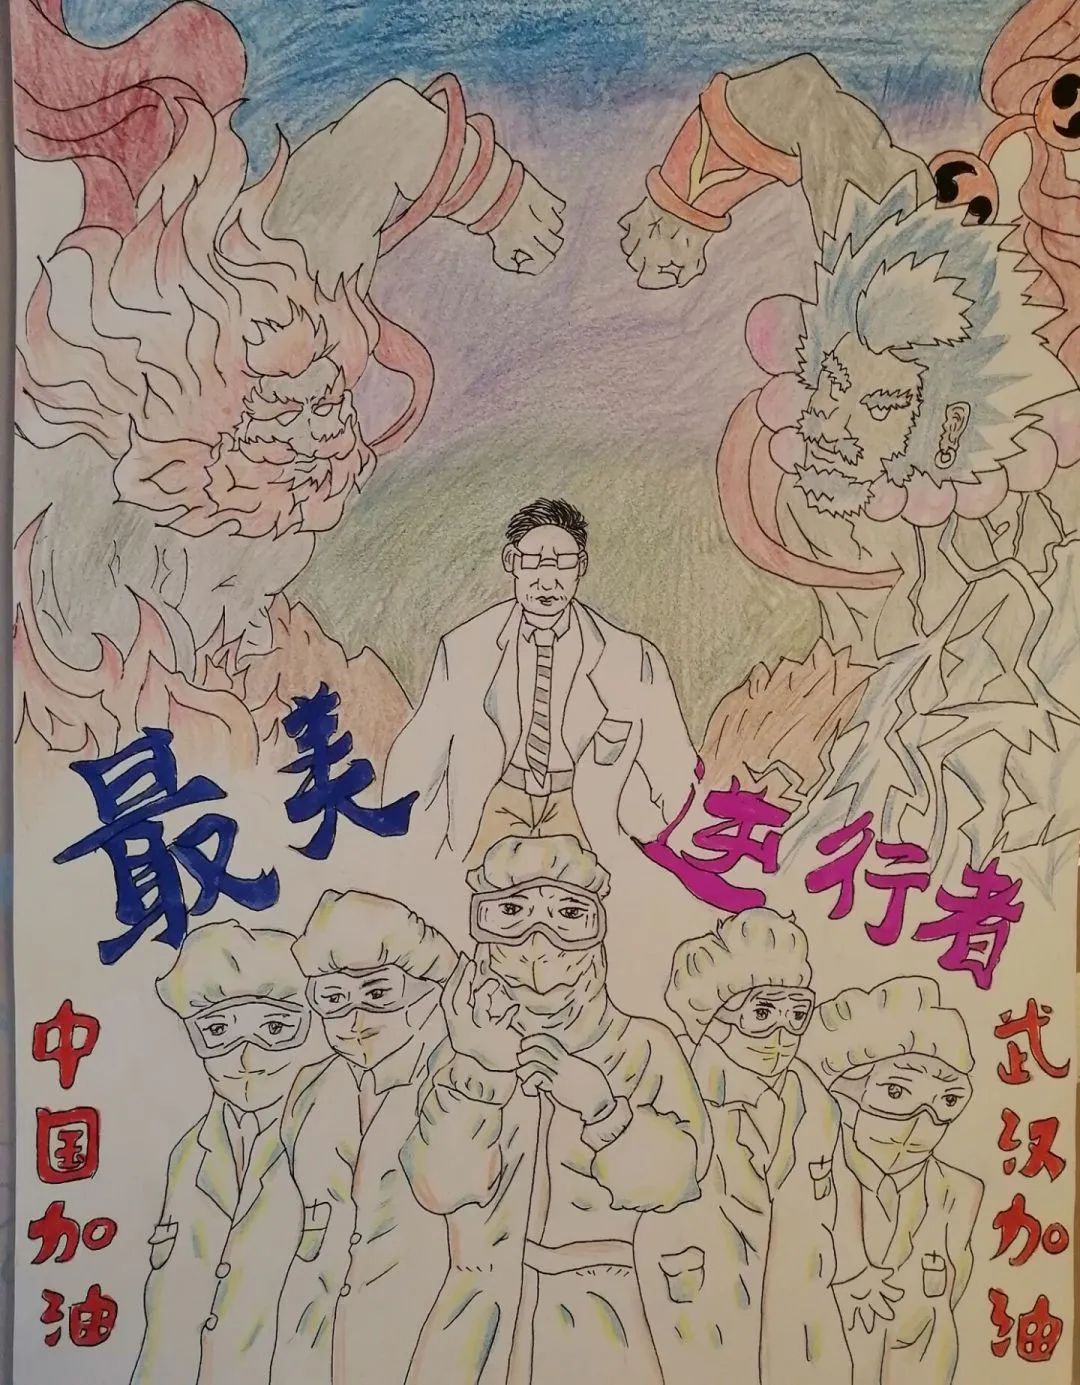 最美
逆行者
中国加油
武汉加油